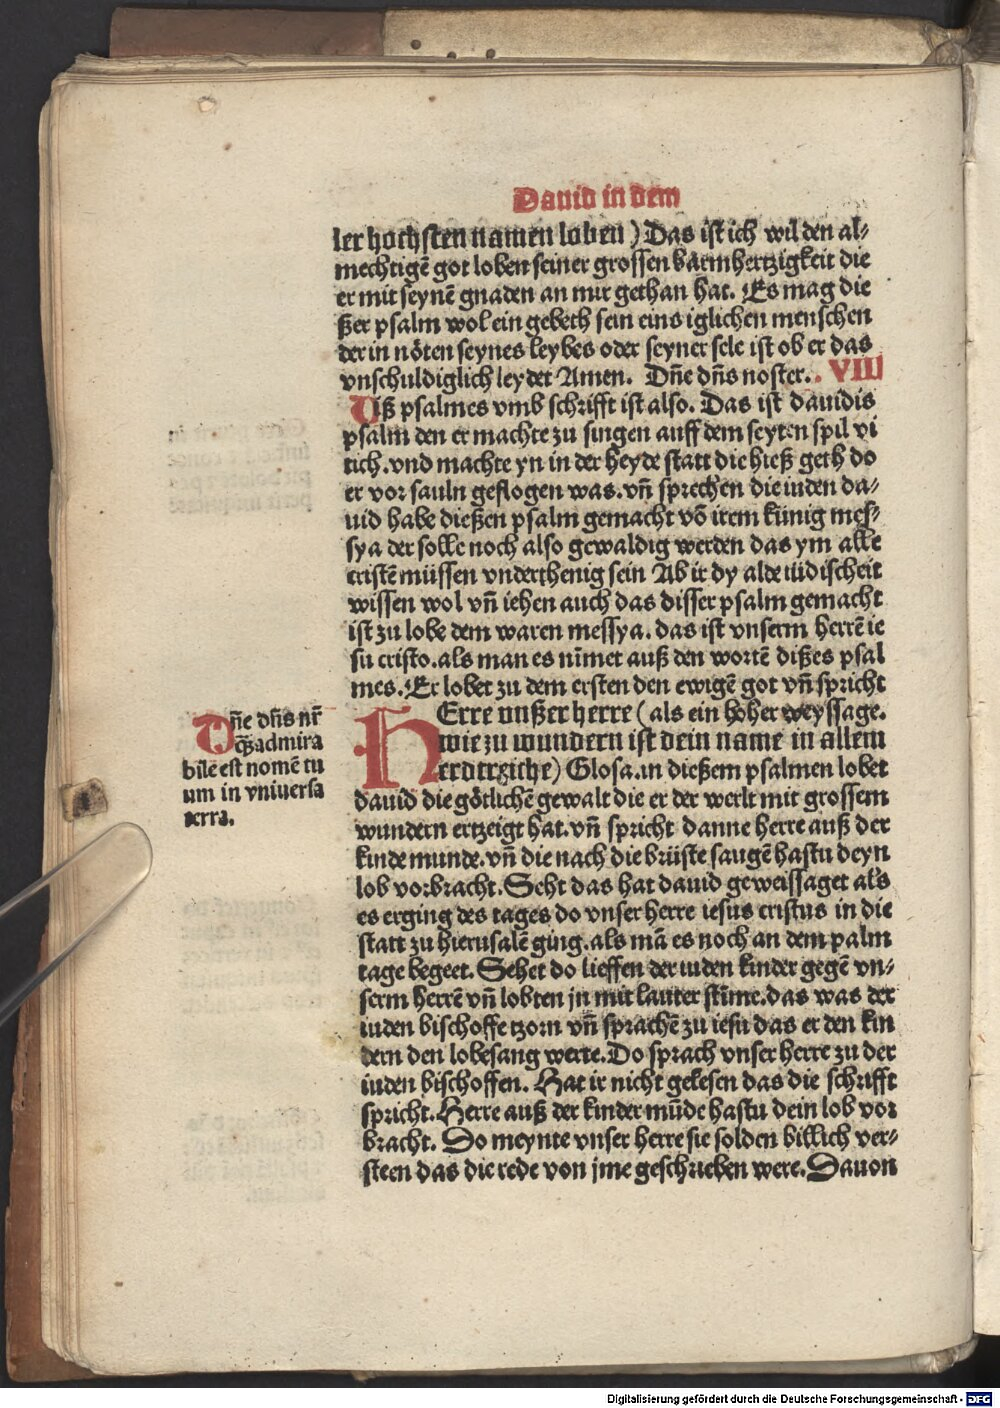 Dauid in dem
ler hochsten namen loben) Das ist ich wil den al⸗
mechtigē got loben seiner grossen barmhertzigkeit die
er mit seynē gnaden an mir gethan hat. Es mag die
ßer psalm wol ein gebeth sein eins iglichen menschen
der in nöten seynes leybes oder seyner sele ist ob er das
vnschuldiglich leydet Amen. Dn̄e dn̄s noster. . VIII
Diß psalmes vmb schrifft ist also. Das ist dauidis
psalm den er machte zu singen auff dem seyten spil vi
tich. vnd machte yn in der heyde statt die hieß geth do
er vor sauln geflogen was. vn̄ sprechen die iuden da⸗
uid habe dießen psalm gemacht vō irem künig mes⸗
sya der solle noch also gewaldig werden das ym alle
cristē müssen vnderthenig sein Ab ir dy alde iüdischeit
wissen wol vn̄ iehen auch das disser psalm gemacht
ist zu lobe dem waren messya. das ist vnserm herrē ie
su cristo. als man es nīmet auß den wortē dißes psal
mes. Er lobet zu dem ersten den ewigē got vn̄ spricht
HErre vnßer herre (als ein hoher weyssage.
wie zu wundern ist dein name in allem
erdtrgiche) Glosa. in dießem psalmen lobet
dauid die götlichē gewalt die er der werlt mit grossem
wundern ertzeigt hat. vn̄ spricht danne herre auß der
kinde munde. vn̄ die nach die brüste saugē hastu deyn
lob vorbracht. Seht das hat dauid geweissaget als
es erging des tages do vnser herre iesus cristus in die
statt zu hierusalē ging. als mā es noch an dem palm
tage begeet. Sehet do lieffen der iuden kinder gegē vn⸗
serm herrē vn̄ lobten jn mit lauter stīme. das was der
iuden bischoffe tzorn vn̄ sprachē zu iesu das er den kin
dern den lobesang werte. Do sprach vnser herre zu der
iuden bischoffen. Hat ir nicht gelesen das die schrifft
spricht. Herre auß der kinder mūde hastu dein lob vor
bracht. Do meynte vnser herre sie solden billich ver⸗
steen das die rede von jme geschrieben were. Dauon
Dn̄e dn̄s nr̄
q̄ admira
bile est nomē tu
um in vniuersa
terra.
Digitalisierung gefördert durch die Deutsche Forschungsgemeinschaft - DFG